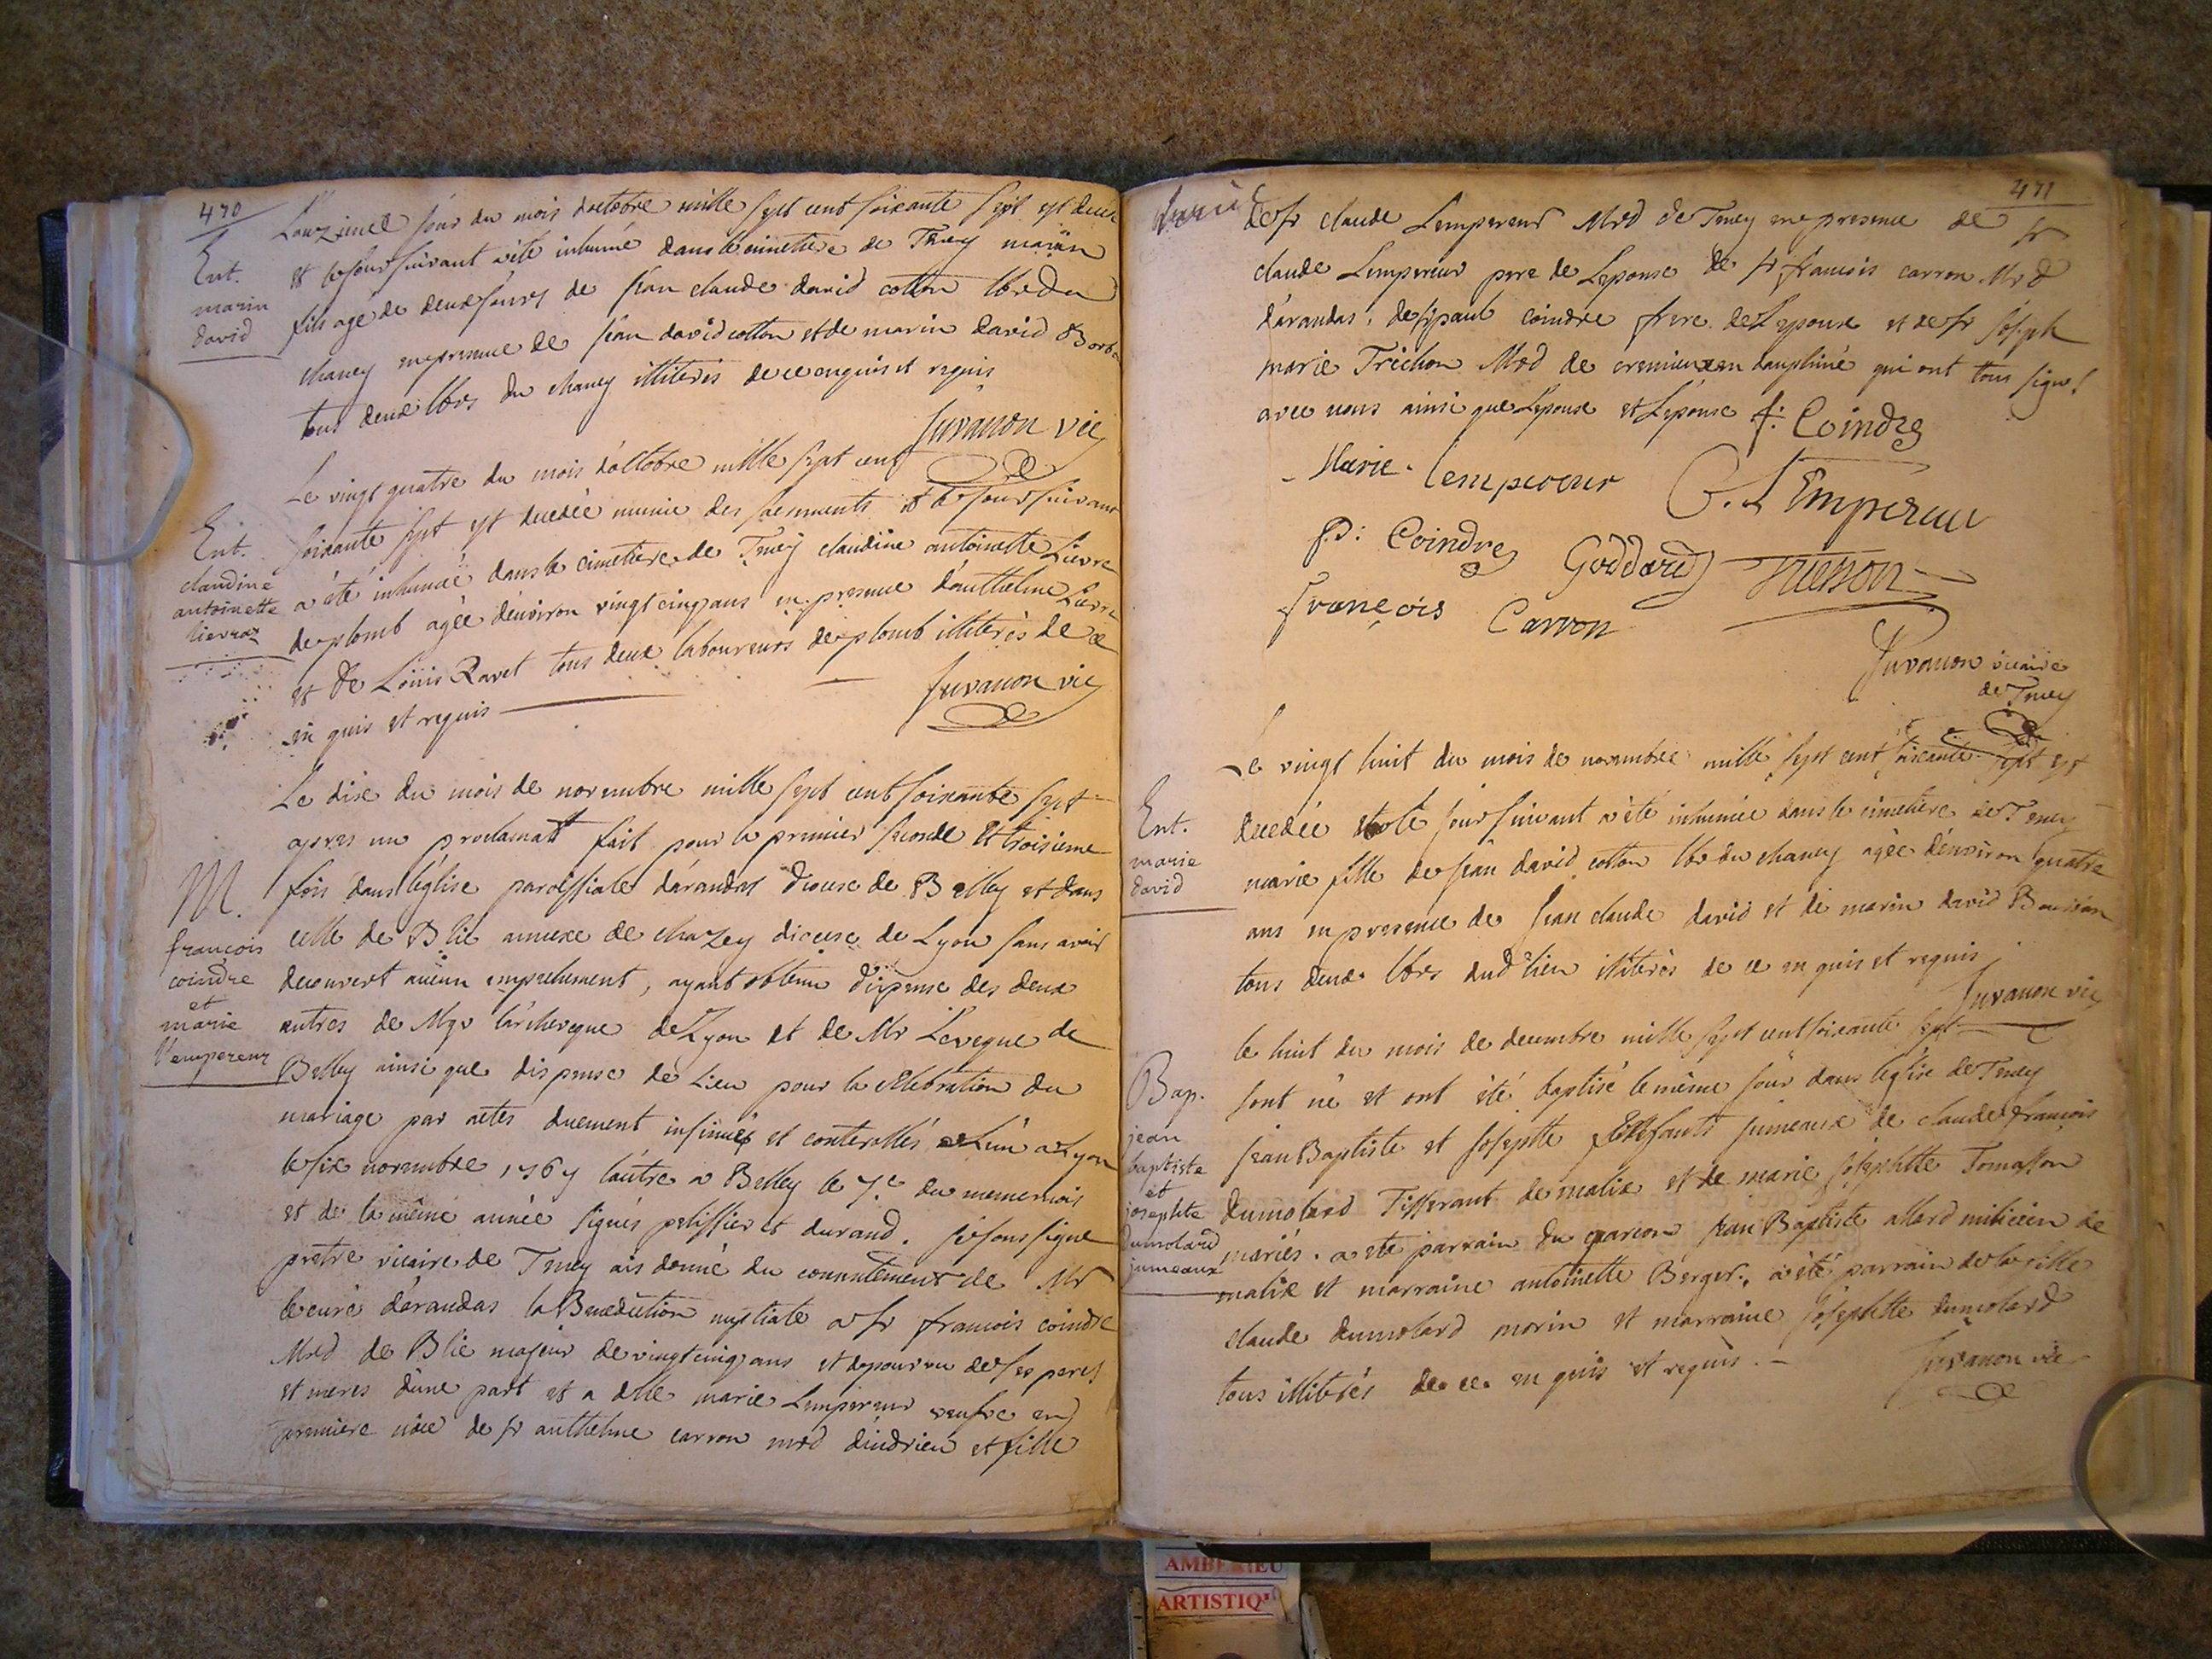 470
Ent.
marin
david
L'onzieme jour du mois d'octobre mille sept cent soixante sept est decede
et le jour suivant a été inhumé dans le cimetiere de Tenay marin
fils agé de deux jours de jean claude david cotton lbr du
chaney en presence de jean david cotton et de marin david
tous deux lbrs du chaney illiterés de ce enquis et requis
Juvanon vic
Ent.
claudine
antoinette
lievraz
Le vingt quatre du mois d'octobre mille sept cent
soixante sept est decedée munie des sacrements et le jour suivant
a été inhumée dans le cimetiere de Tenay claudine antoinette Lievra
de plomb agée d'environ vingt cinq ans en presence d'anthelme
et de Louis Ravet tous deux laboureurs de plomb illiterés de ce
en quis et requis
Juvanon vic
M.
françois
coindre
et
marie
l'empereur
Le dix du mois de novembre mille sept cent soixante sept
apres un proclamatt fait pour la premier seconde et troisieme
fois dans l'église paroissiale d'arandas diocese de Belley et dans
celle de Blie annexe de chazey diocese de Lyon sans avoir
decouvert aucun empechement, ayant obtenu dispense des deux
autres de Mgr l'archeveque de Lyon et de Mr Leveque de
Belley ainsi que dispense de Lieu pour la celebration du
mariage par actes duement insinués et controllés L'un a Lyon
le six novembre 1767 l'autre a Belley le 7e du meme mois
et de la même année signés pelissier et durand. je soussigné
pretre vicaire de Tenay ais donné du consentement de Mr
le curé d'arandas la Benediction nuptiale a sr françois coindre
Mrd de Blie majeur de vingt cinq ans et depourvu de ses peres
et meres d'une part et a dlle marie Lempereur veufve en
premiere nôce de sr anthelme carron mrd d'indrieu et fille
471
de sr claude Lempereur Mrd de Tenay en presence de sr
claude Lempereur pere de Lepouse de sr françois carron Mrd
d'arandas, de sr paul coindre frere de Lepoux et de sr joseph
marie Trichon Mrd de cremieux en dauphiné qui ont tous signé
avec nous ainsi que Lepoux et Lepouse f: Coindre
Marie lempereur C. L'Empereur
P: Coindre Goddard
françois Carron
Juvanon vicaire
de Tenay
Ent.
marie
david
Le vingt huit du mois de novembre mille sept cent soixante sept est
decedée et le jour suivant a été inhumée dans le cimetiere de Tenay
marie fille de jean david cotton lbr du chaney agée d'environ quatre
ans en presence de jean claude david et de marin david
tous deux lbrs dud lieu illiterés de ce en quis et requis
Juvanon vic
Bap.
jean
baptiste
et
josephte
dumolard
jumeaux
le huit du mois de decembre mille sept cent soixante sept
sont né et ont été baptisé le même jour dans l'église de Tenay
jean Baptiste et josephte enfants jumeaux de claude françois
dumolard Tisserant de malix et de marie josephte Tomasson
mariés. a ete parrain du garcon jean Baptiste allard milicien de
malix et marraine antoinette Berger, a été parrain de la fille
claude dumolard morin et marraine josephtte dumolard
tous illiterés de ce en quis et requis.
Juvanon vic
AMBERIEU
ARTISTIQ